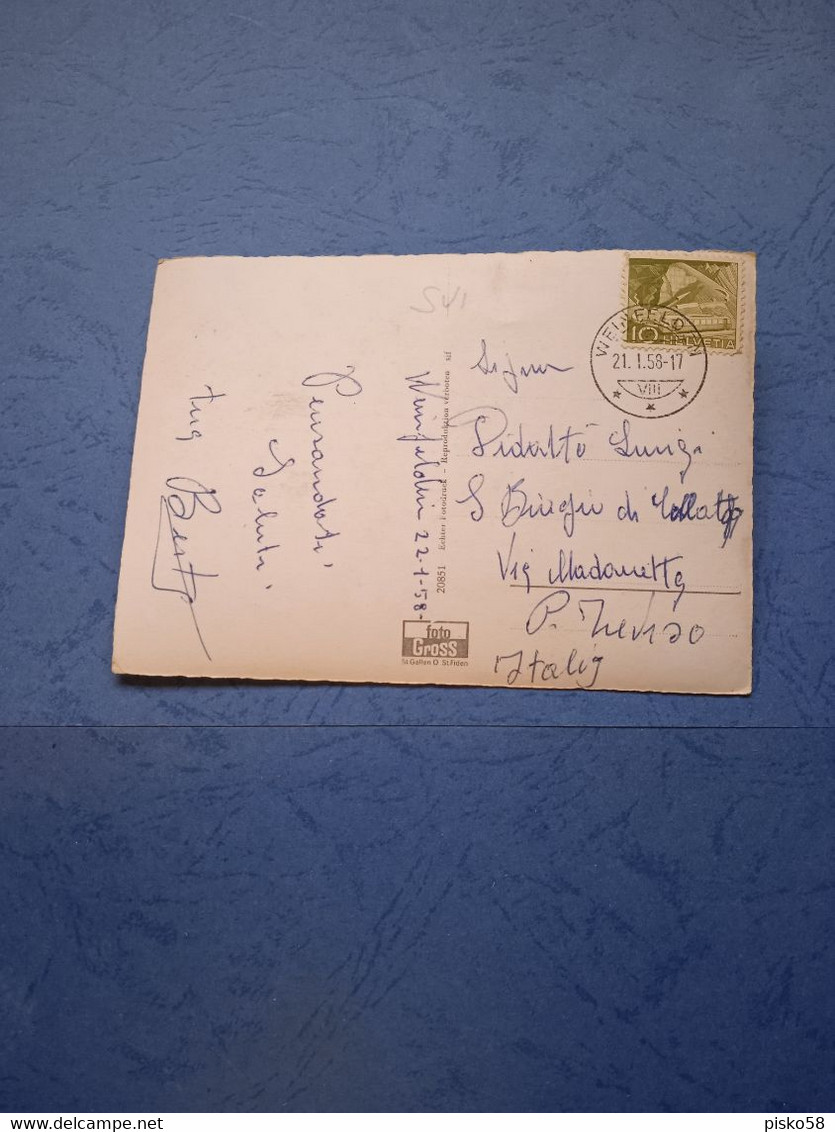 S41
Weinfelden 22-1-58-
Pensandoti
Saluti
tuo Berto
20851 Echter Fotodruck - Reproduktion verboten - sif
foto
Gross
St Gallen O St Fiden
10 HELVETIA
WEINFELDEN
21.1.58-17
VIII
Signor
Pidalto Luigi
S Biagio di Callalta
Via Madonetta
P. Treviso
Italia
delcampe.net
pisko58